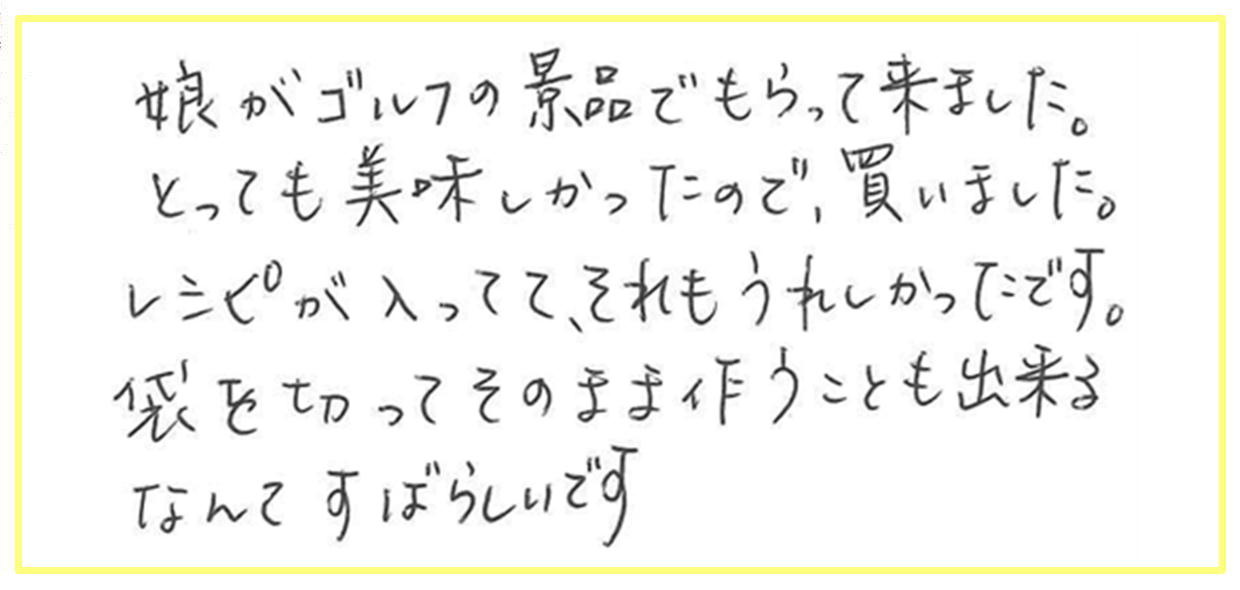 娘がゴルフの景品でもらって来ました。
とっても美味しかったので、買いました。
レシピが入ってて、それもうれしかったです。
袋を切ってそのまま作うことも出来る
なんてすばらしいです